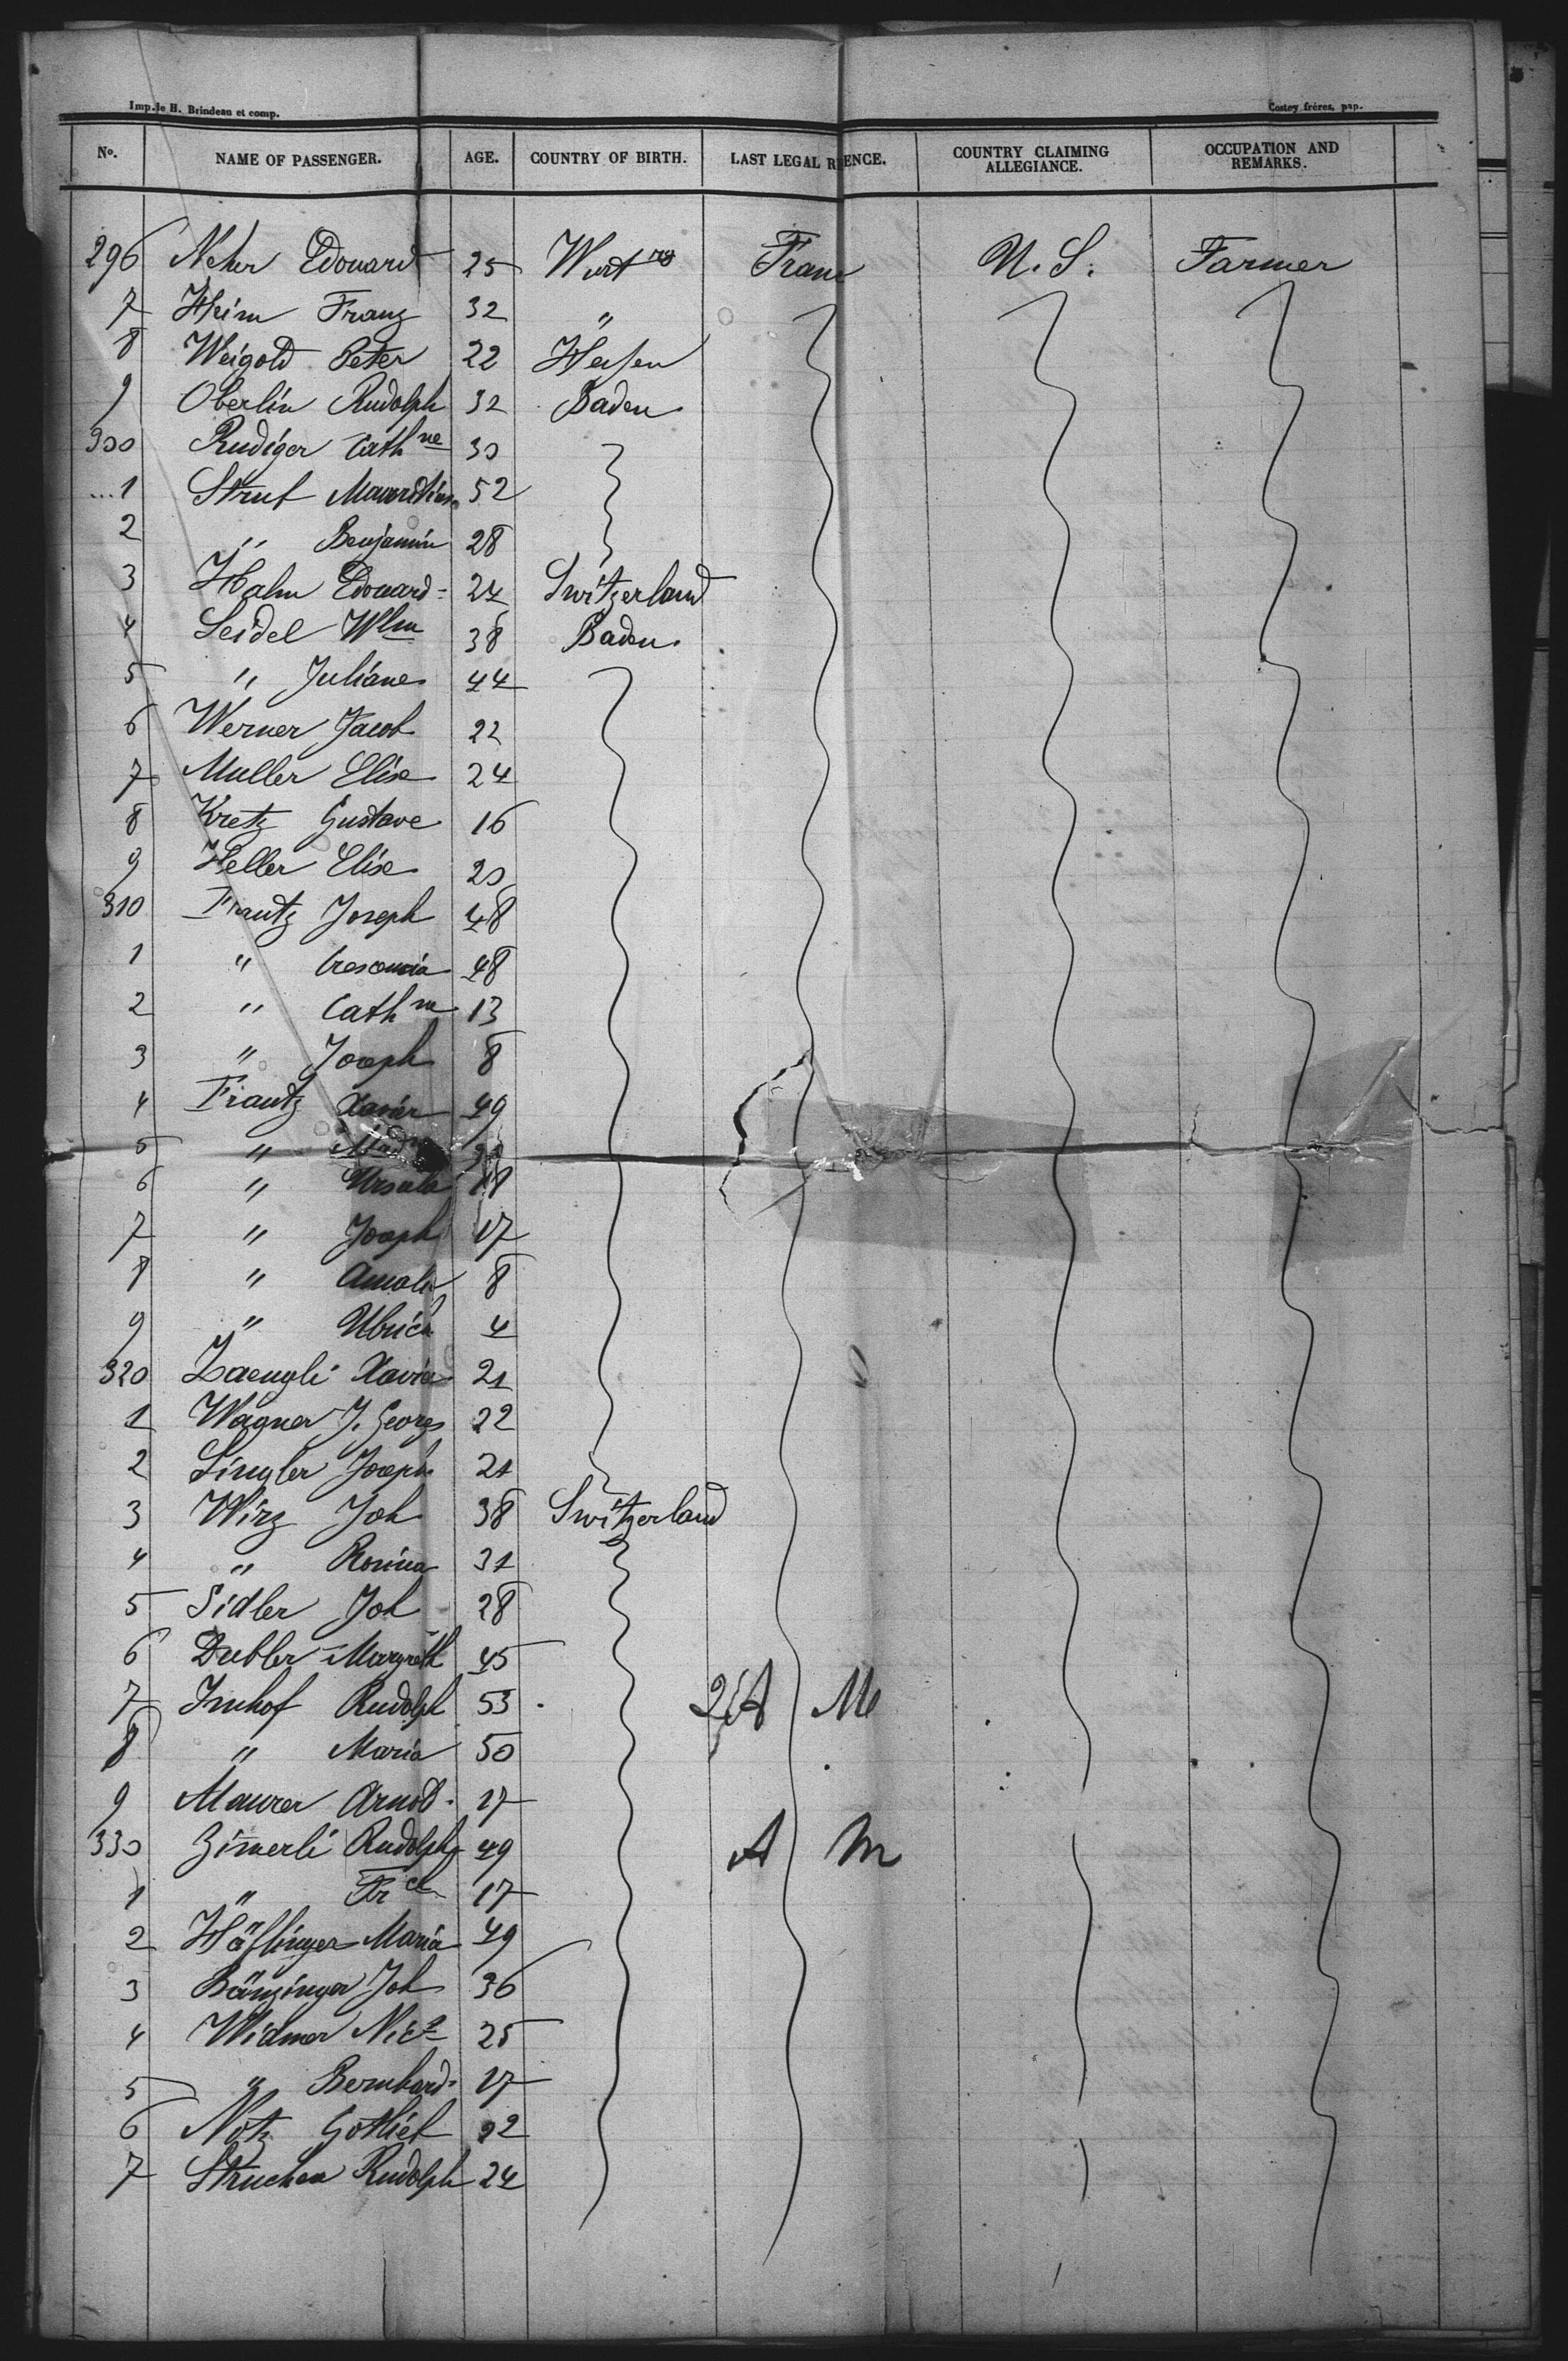 Imp. de H. Brindeau et comp. Costey frères, pap.
No. NAME OF PASSENGER. AGE. COUNTRY OF BIRTH. LAST LEGAL R ENCE. COUNTRY CLAIMING ALLEGIANCE. OCCUPATION AND REMARKS.
296 Neher Edouard 25 Wurt rg Franc U. S. Farmer
7 Heim Franz 32 "
8 Weigold Peter 22 Hessen
9 Oberlin Rudolph 32 Baden
300 Rudiger Cath ne 30
1 Struf 52
2 " Benjamin 28
3 Hahn Edouard 24 Switzerland
4 Seidel Wlm 38 Baden
5 " Juliane 44
6 Werner Jacob 22
7 Muller Elise 24
8 Kretz Gustave 16
9 Heller Elise 20
310 Frantz Joseph 48
1 " Crescencia 48
2 " Cath ne 13
3 " Joseph 8
4 Frantz Xavier 49
5 "
6 " Ursula 18
7 " Joseph 17
8 " Amali 8
9 " 4
320 Zaengli Xavier 21
1 Wagner J. Georg 22
2 Singler Joseph 21
3 Wirz Joh 38 Switzerland
4 " Rosina 31
5 Sidler Joh 28
6 Dubler Margreth 45
7 Imhof Rudolph 53 2 A M
8 " Maria 50
9 Maurer Arnold 17
330 Zim̅erli Rudolph 49 A M
1 " Fr ch 17
2 Häflinger Maria 49
3 Bänzinger Joh 36
4 Widmer Nic 25
5 " Bernhard 17
6 Notz Gottlieb 22
7 Struchen Rudolph 24